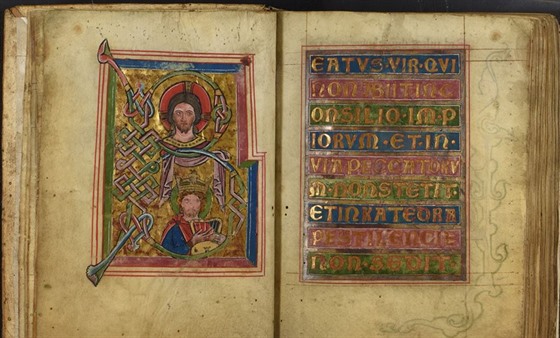 B
EATVS·VIR·QVI
NON·ABIIT·INC
ONSILIO·IM·P
IORVM·ET·IN·
VIA PECCATORV
M·NON STETIT·
ET IN KATEDRA
PESTILENCIE
NON·SEDIT·